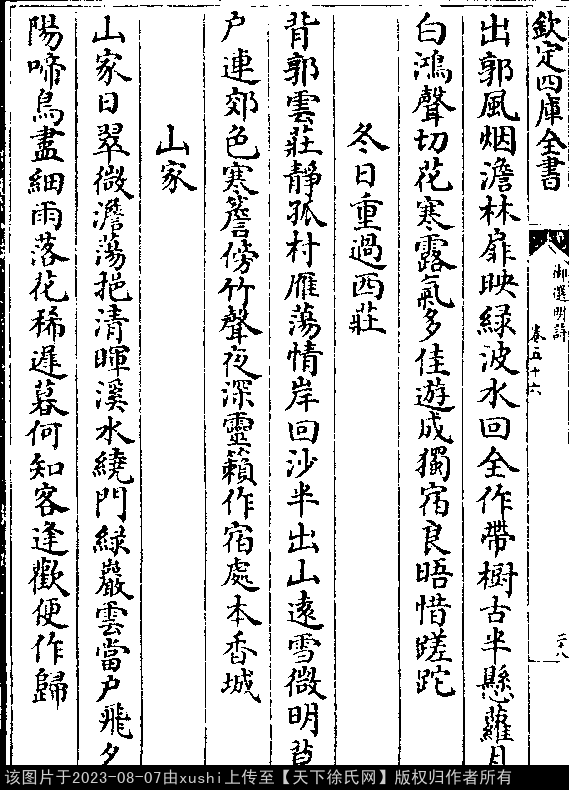 欽定四庫全書
御選明詩
卷五十六
二十八
出郭風烟澹林扉映綠波水回全作帶樹古半懸蘿月
白鴻聲切花寒露氣多佳遊成獨宿良晤惜蹉跎
冬日重過西莊
背郭雲莊靜孤村雁蕩情岸回沙半出山遠雪微明草
戶連郊色寒簷傍竹聲夜深靈籟作宿處本香城
山家
山家日翠微澹蕩挹清暉溪水繞門綠巖雲當戶飛夕
陽啼鳥盡細雨落花稀遲暮何知客逢歡便作歸
该图片于2023-08-07由xushi上传至【天下徐氏网】版权归作者所有